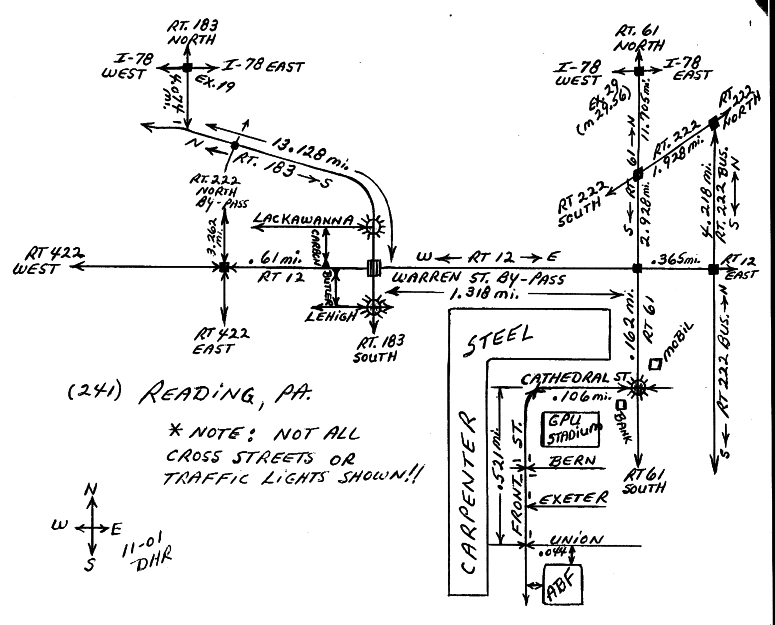 RT. 183
NORTH
I-78
WEST
I-78 EAST
EX.19
4.074
mi.
13.128 mi.
N
RT. 183 → S
RT. 222
NORTH
BY-PASS
3.262
mi.
LACKAWANNA
CARBON
RT 422
WEST
.61 mi.
RT 12
BUTLER
LEHIGH
RT 422
EAST
RT. 183
SOUTH
W ← RT 12 → E
WARREN ST. BY-PASS
1.318 mi.
RT. 61
NORTH
I-78
WEST
I-78
EAST
EX. 29
(m 29.56)
11.705 mi.
S ← RT 61 → N
RT. 222
NORTH
RT. 222
1.928 mi.
RT 222
SOUTH
2.928 mi.
4.218 mi.
RT. 222 BUS.
S N
.365 mi.
RT 12
EAST
.162 mi.
RT 61
S ← RT 222 BUS. → N
MOBIL
STEEL
CARPENTER
CATHEDRAL ST.
.106 mi.
BANK
GPU
STADIUM
.521 mi.
FRONT ST.
BERN
EXETER
UNION
.044
ABF
RT 61
SOUTH
(241) READING, PA.
* NOTE: NOT ALL
CROSS STREETS OR
TRAFFIC LIGHTS SHOWN!!
N
W E
S
11-01
DHR